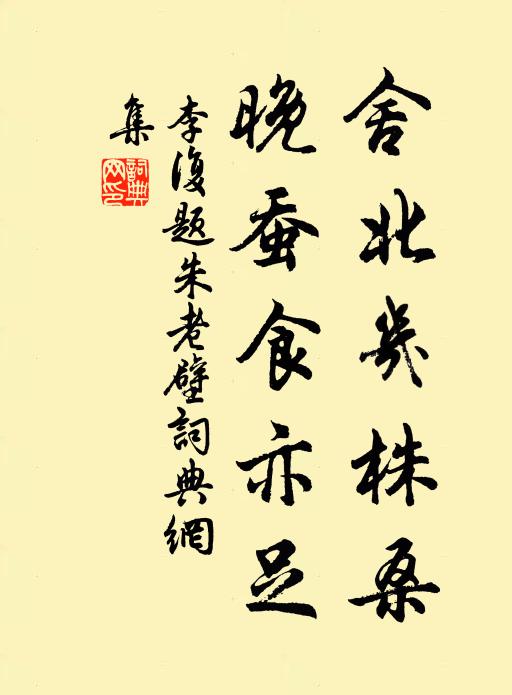 舍北幾株桑
晚蚕食亦足
李復題朱老壁詞典網
集
詞典
网印